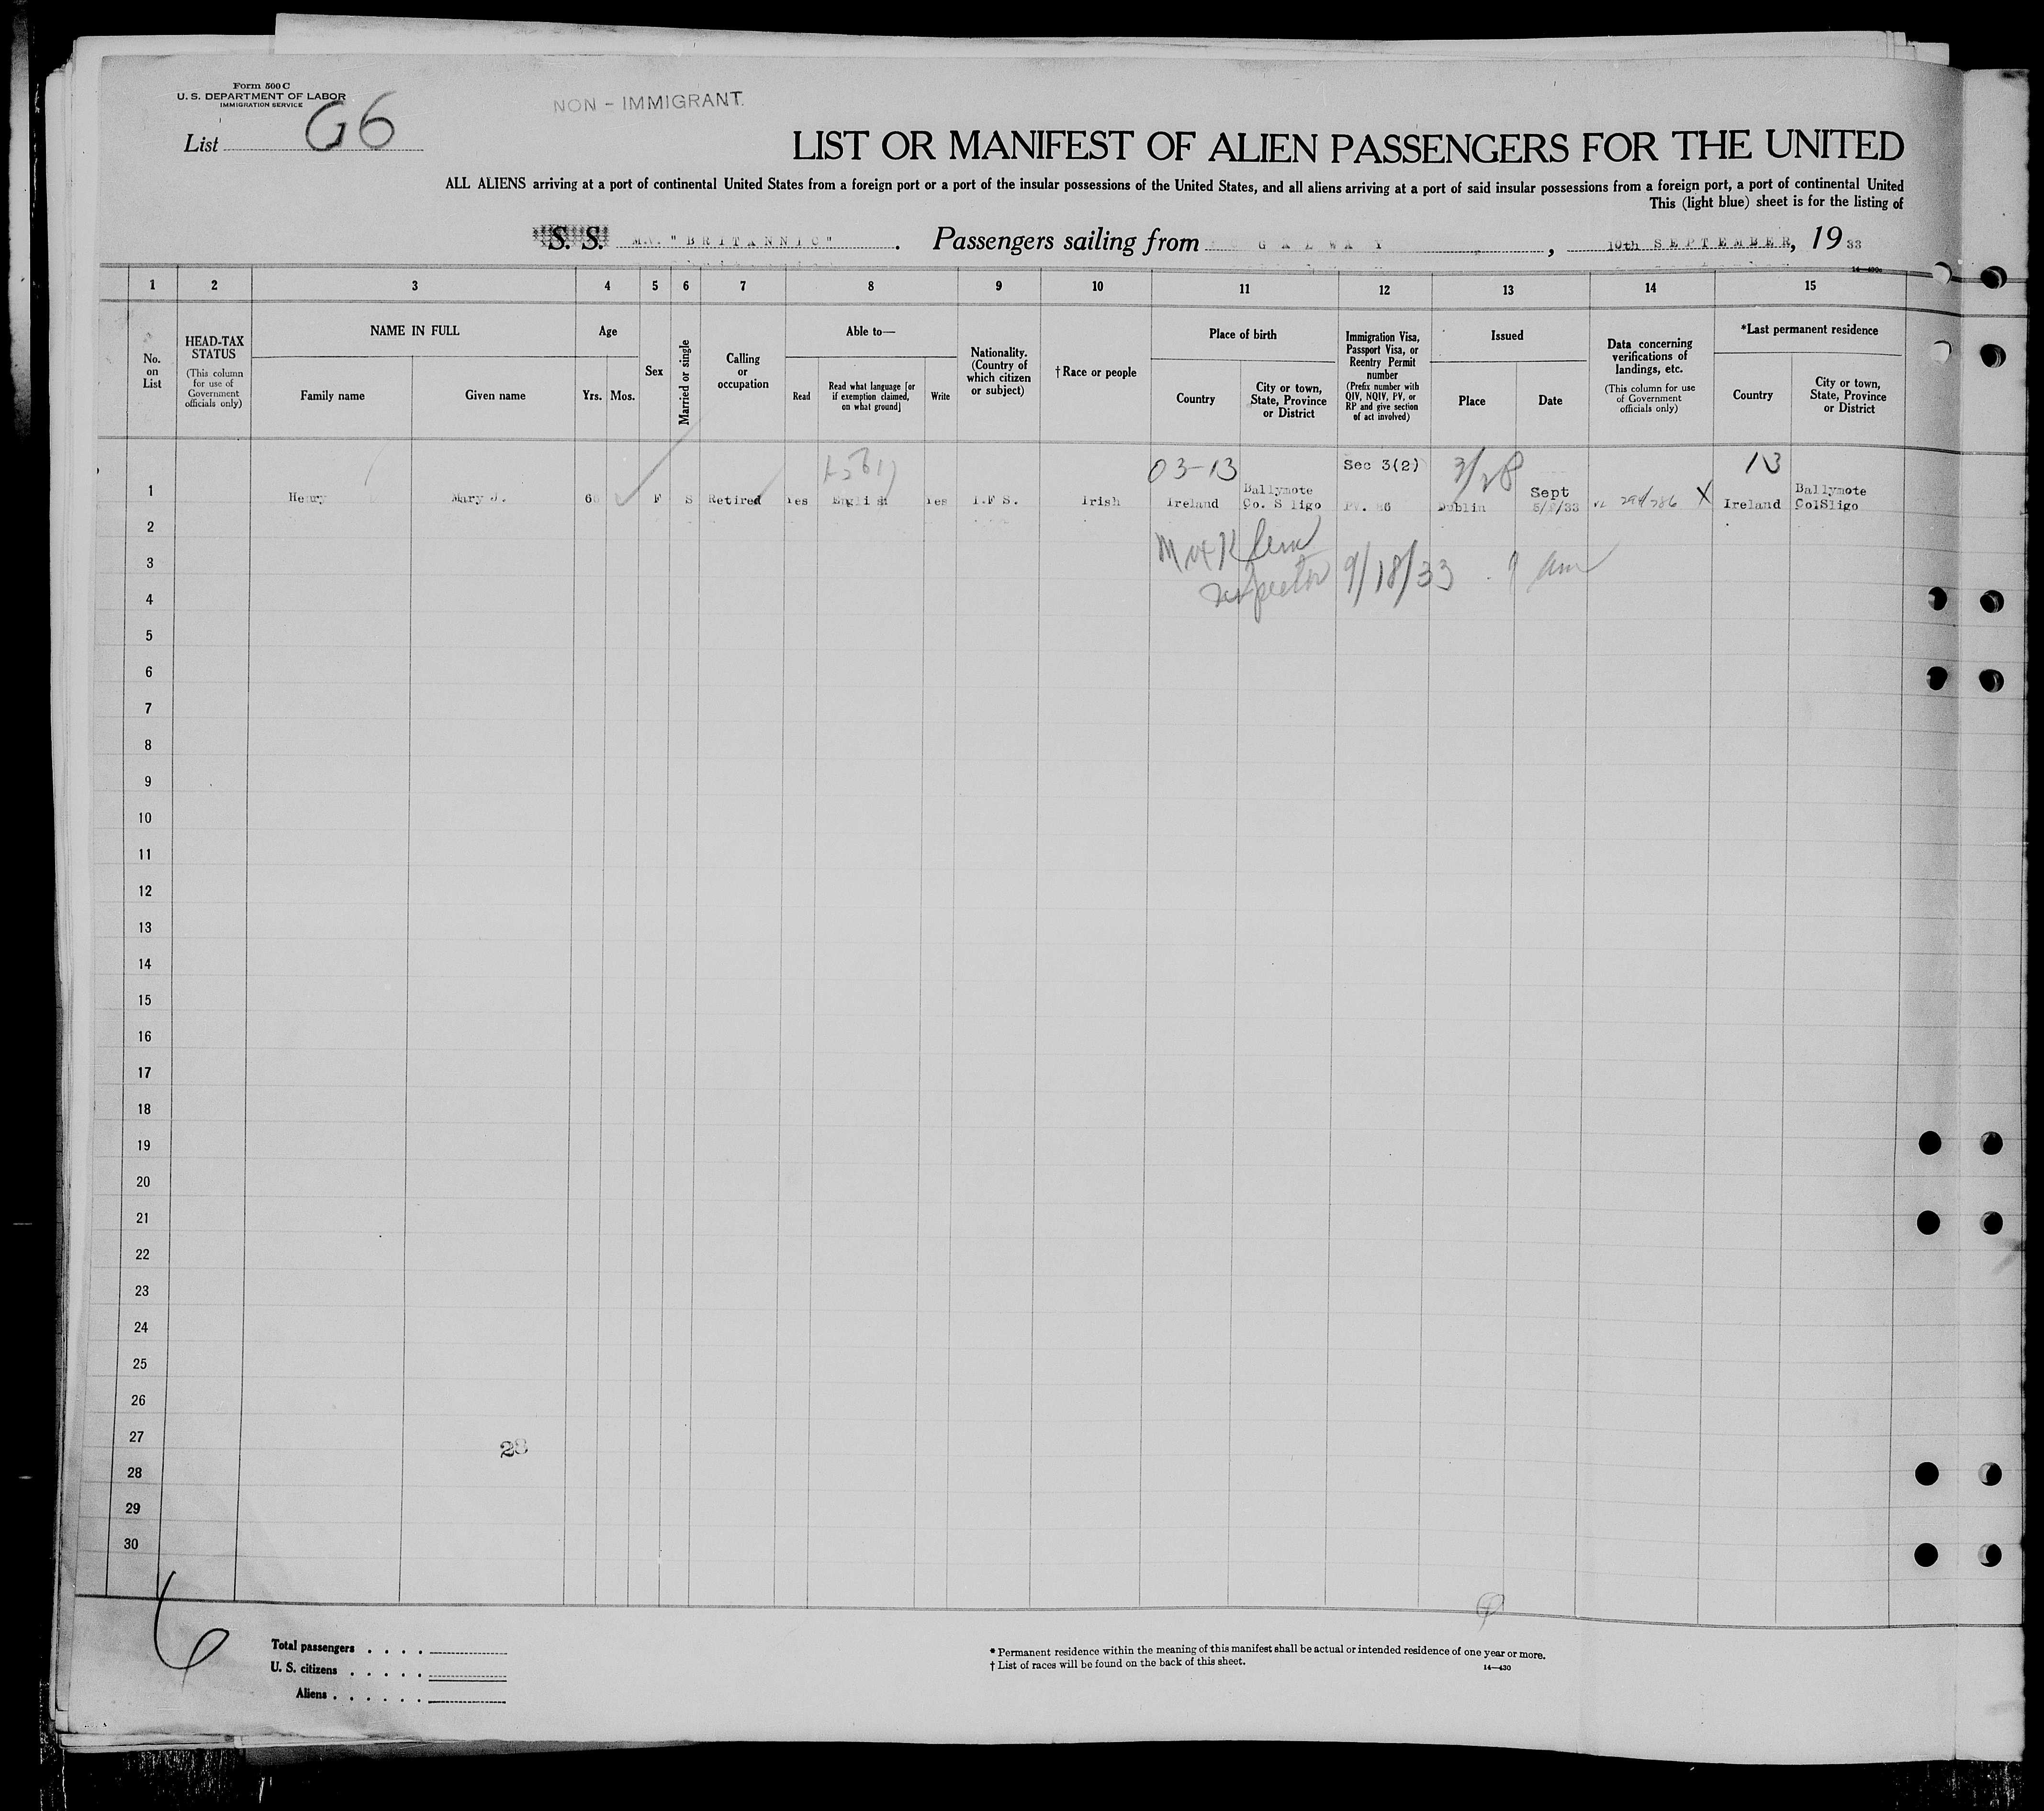 Form 500 C
U. S. DEPARTMENT OF LABOR
IMMIGRATION SERVICE
NON - IMMIGRANT.
List G6
LIST OR MANIFEST OF ALIEN PASSENGERS FOR THE UNITED
ALL ALIENS arriving at a port of continental United States from a foreign port or a port of the insular possessions of the United States, and all aliens arriving at a port of said insular possessions from a foreign port, a port of continental United
This (light blue) sheet is for the listing of
S. S. M.V. "BRITANNIC". Passengers sailing from GALWAY, 10th SEPTEMBER, 19 33
1 2 3 4 5 6 7 8 9 10 11 12 13 14 15
No. on List
HEAD-TAX STATUS
(This column for use of Government officials only)
NAME IN FULL
Family name
Given name
Age
Yrs.
Mos.
Sex
Married or single
Calling or occupation
Able to—
Read
Read what language [or if exemption claimed, on what ground]
Write
Nationality. (Country of which citizen or subject)
†Race or people
Place of birth
Country
City or town, State, Province or District
Immigration Visa, Passport Visa, or Reentry Permit number
(Prefix number with QIV, NQIV, PV, or RP and give section of act involved)
Issued
Place
Date
Data concerning verifications of landings, etc.
(This column for use of Government officials only)
*Last permanent residence
Country
City or town, State, Province or District
03-13 Sec 3(2) 3/28 13
1 Henry Mary J. F S Retired Yes English Yes I.F S. Irish Ireland Ballymote Co. S ligo Dublin Sept X Ireland Ballymote ColSligo
2
3
Inspector 9/18/33 9 am
4
5
6
7
8
9
10
11
12
13
14
15
16
17
18
19
20
21
22
23
24
25
26
27
28
29
30
6
Total passengers . . . .
U. S. citizens . . . . .
Aliens . . . . . .
* Permanent residence within the meaning of this manifest shall be actual or intended residence of one year or more.
† List of races will be found on the back of this sheet.
14—430